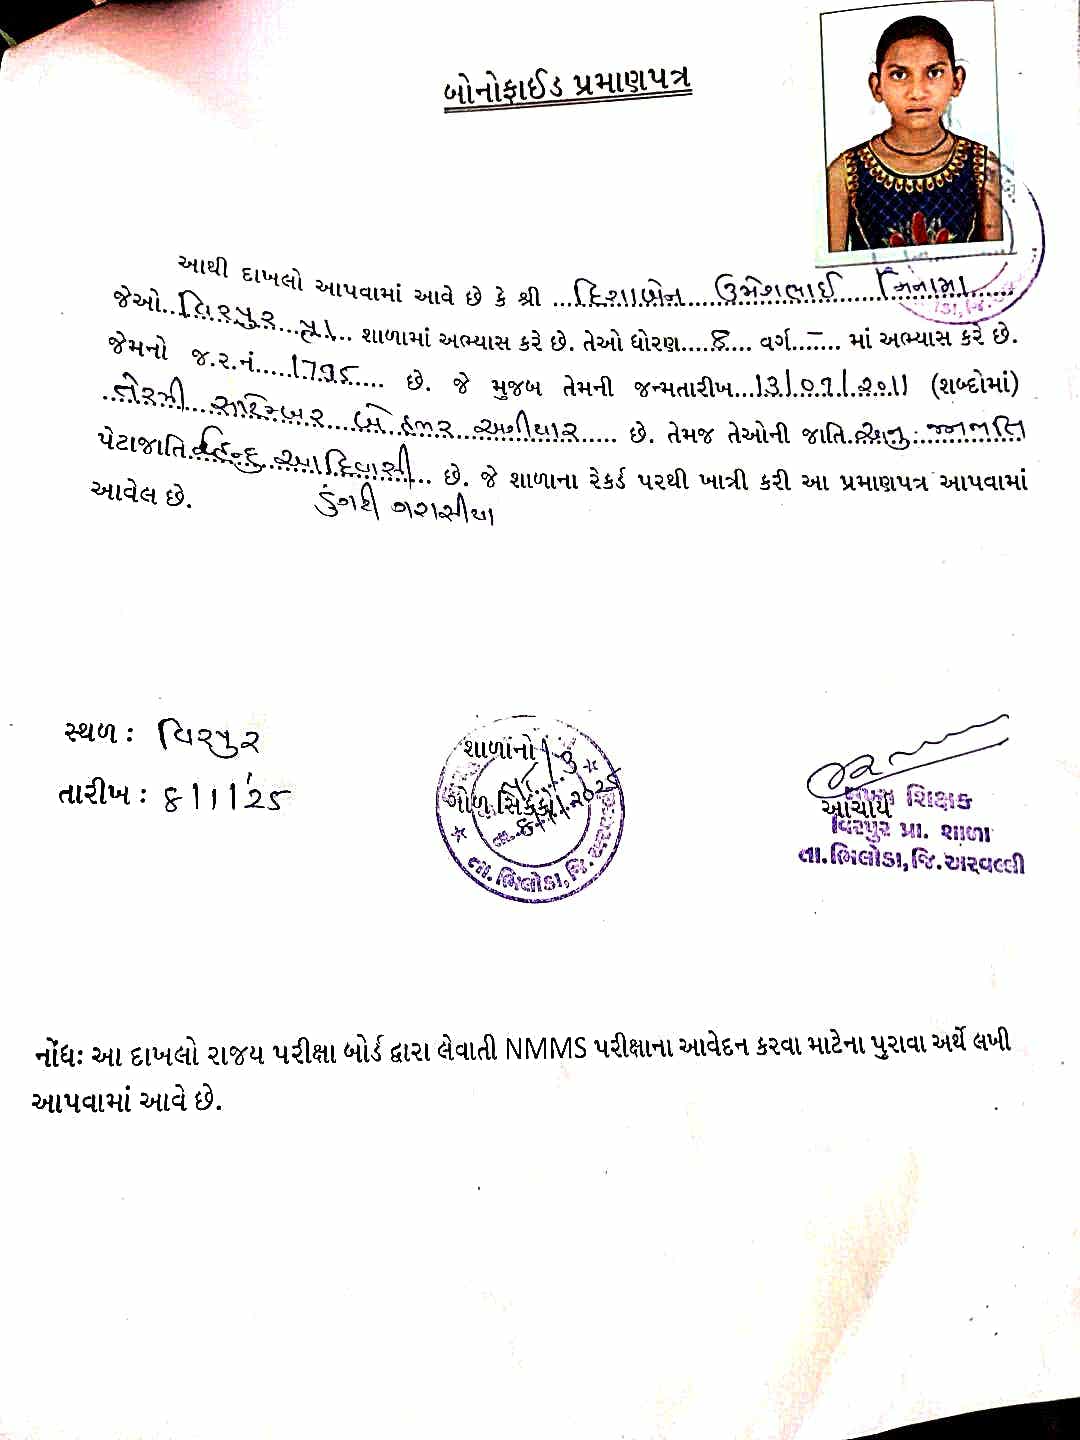 બોનોફાઈડ પ્રમાણપત્ર
આથી દાખલો આપવામાં આવે છે કે શ્રી ...દિશાબેન....ઉમેશભાઈ......નિનામા......
જેઓ..વિરપુર...પ્રા.... શાળામાં અભ્યાસ કરે છે. તેઓ ધોરણ....8... વર્ગ..–... માં અભ્યાસ કરે છે.
જેમનો જ.ર.નં.....1795...... છે. જે મુજબ તેમની જન્મતારીખ...13/09/2011 (શબ્દોમાં)
..તેરમી...સપ્ટેમ્બર...બે..હજાર..અગીયાર..... છે. તેમજ તેઓની જાતિ..અનુ. જનજાતિ
પેટાજાતિ..હિન્દુ..આદિવાસી... છે. જે શાળાના રેકર્ડ પરથી ખાત્રી કરી આ પ્રમાણપત્ર આપવામાં
આવેલ છે. ડુંગરી ગરાસીયા
સ્થળ : વિરપુર
તારીખ : 6/11/25
શાળાનો
ગોળ સિક્કો
તા. ભિલોડા, જિ.
આચાર્ય
મુખ્ય શિક્ષક
વિરપુર પ્રા. શાળા
તા.ભિલોડા, જિ.અરવલ્લી
નોંધઃ આ દાખલો રાજ્ય પરીક્ષા બોર્ડ દ્વારા લેવાતી NMMS પરીક્ષાના આવેદન કરવા માટેના પુરાવા અર્થે લખી
આપવામાં આવે છે.